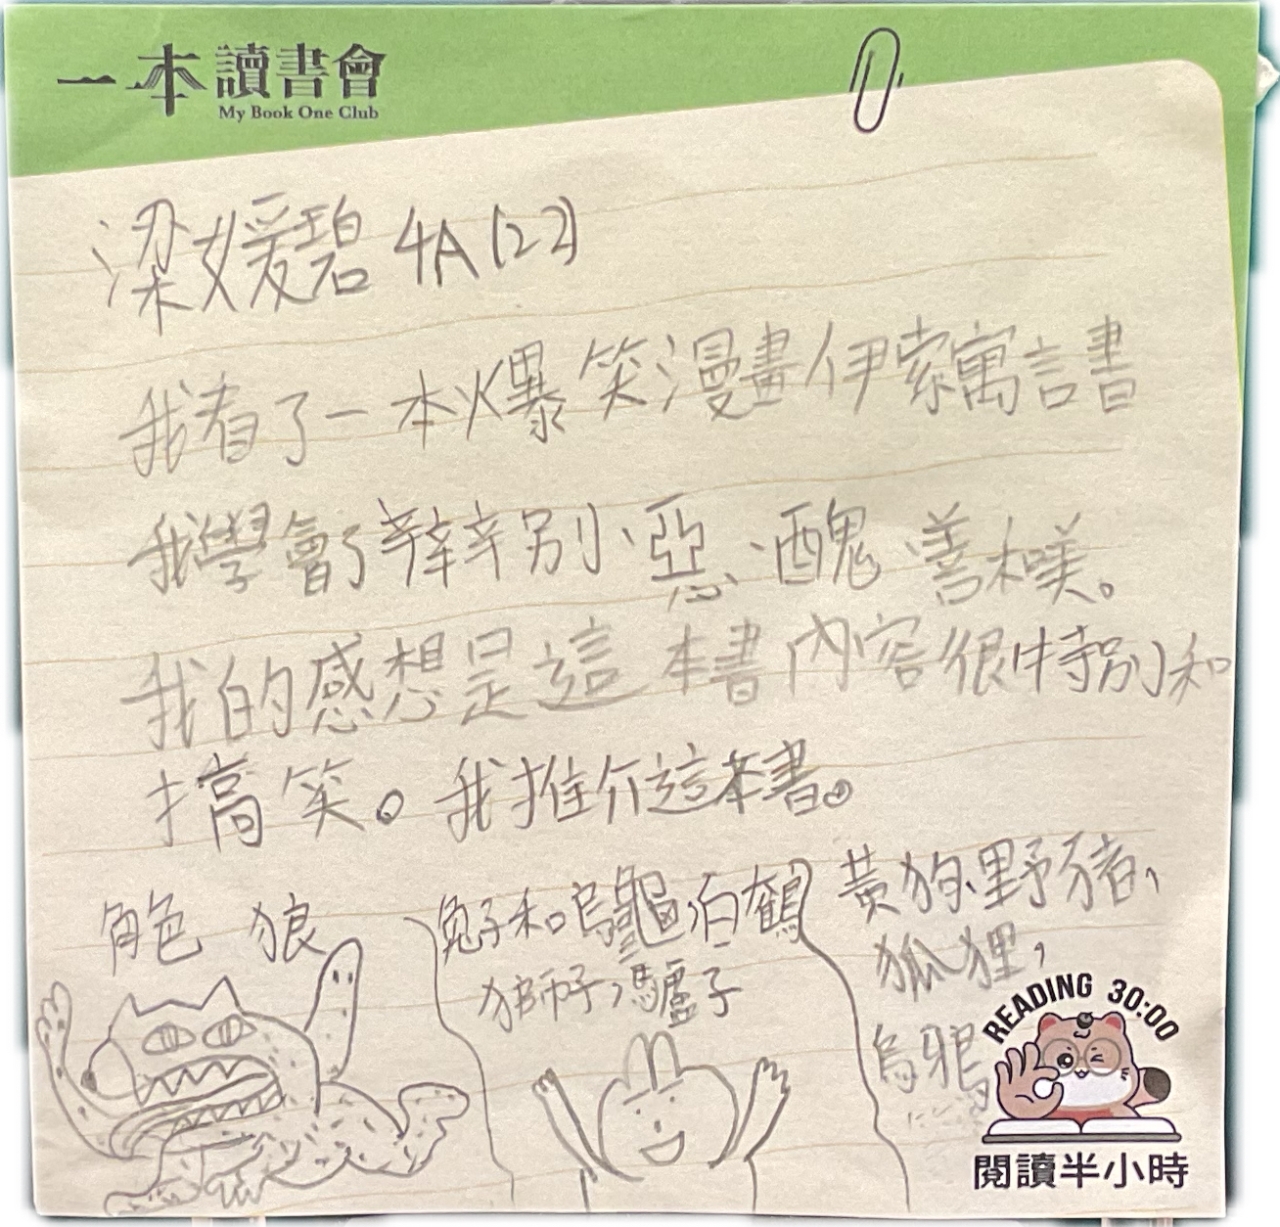 一本讀書會
My Book One Club
梁媛碧 4A(22)
我看了一本爆笑漫畫伊索寓言書
我學會了辨別惡、醜善和美。
我的感想是這本書內容很特別和
搞笑。我推介這本書。
角色 狼
兔子和烏龜,白鶴
獅子,驢子
黃狗,野豬,
狐狸,
烏鴉
READING 30:00
閱讀半小時